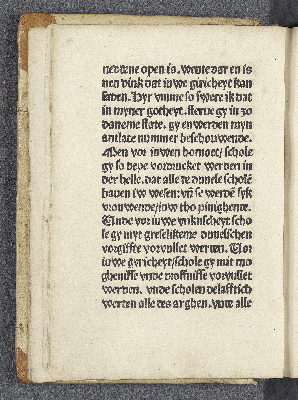 neddene open is. wente dar en is
nen dink dat iuwe gyricheyt kan
saden. Hyr vmme so swere ik dat
in myner gotheyt. sterue gy in so
daneme state. gy en werden myn
antlate nummer beschouwende.
Men vor iuwen homoet/ schole
gy so depe vordrucket werden in
der helle. dat alle de duuele schole
bauen iw wesen: vn se werde syk
vrouwende/iuw tho pinighende.
Unde vor iuwe vnkuscheyt scho
le gy myt greselikeme duuelschen
vorgiffte voruullet werden. Vor
iuwe gyricheyt/schole gy mit mo
ghenisse vnde droffnisse voruullet
werden. vnde scholen delafftich
werden alle des arghen. vnde alle